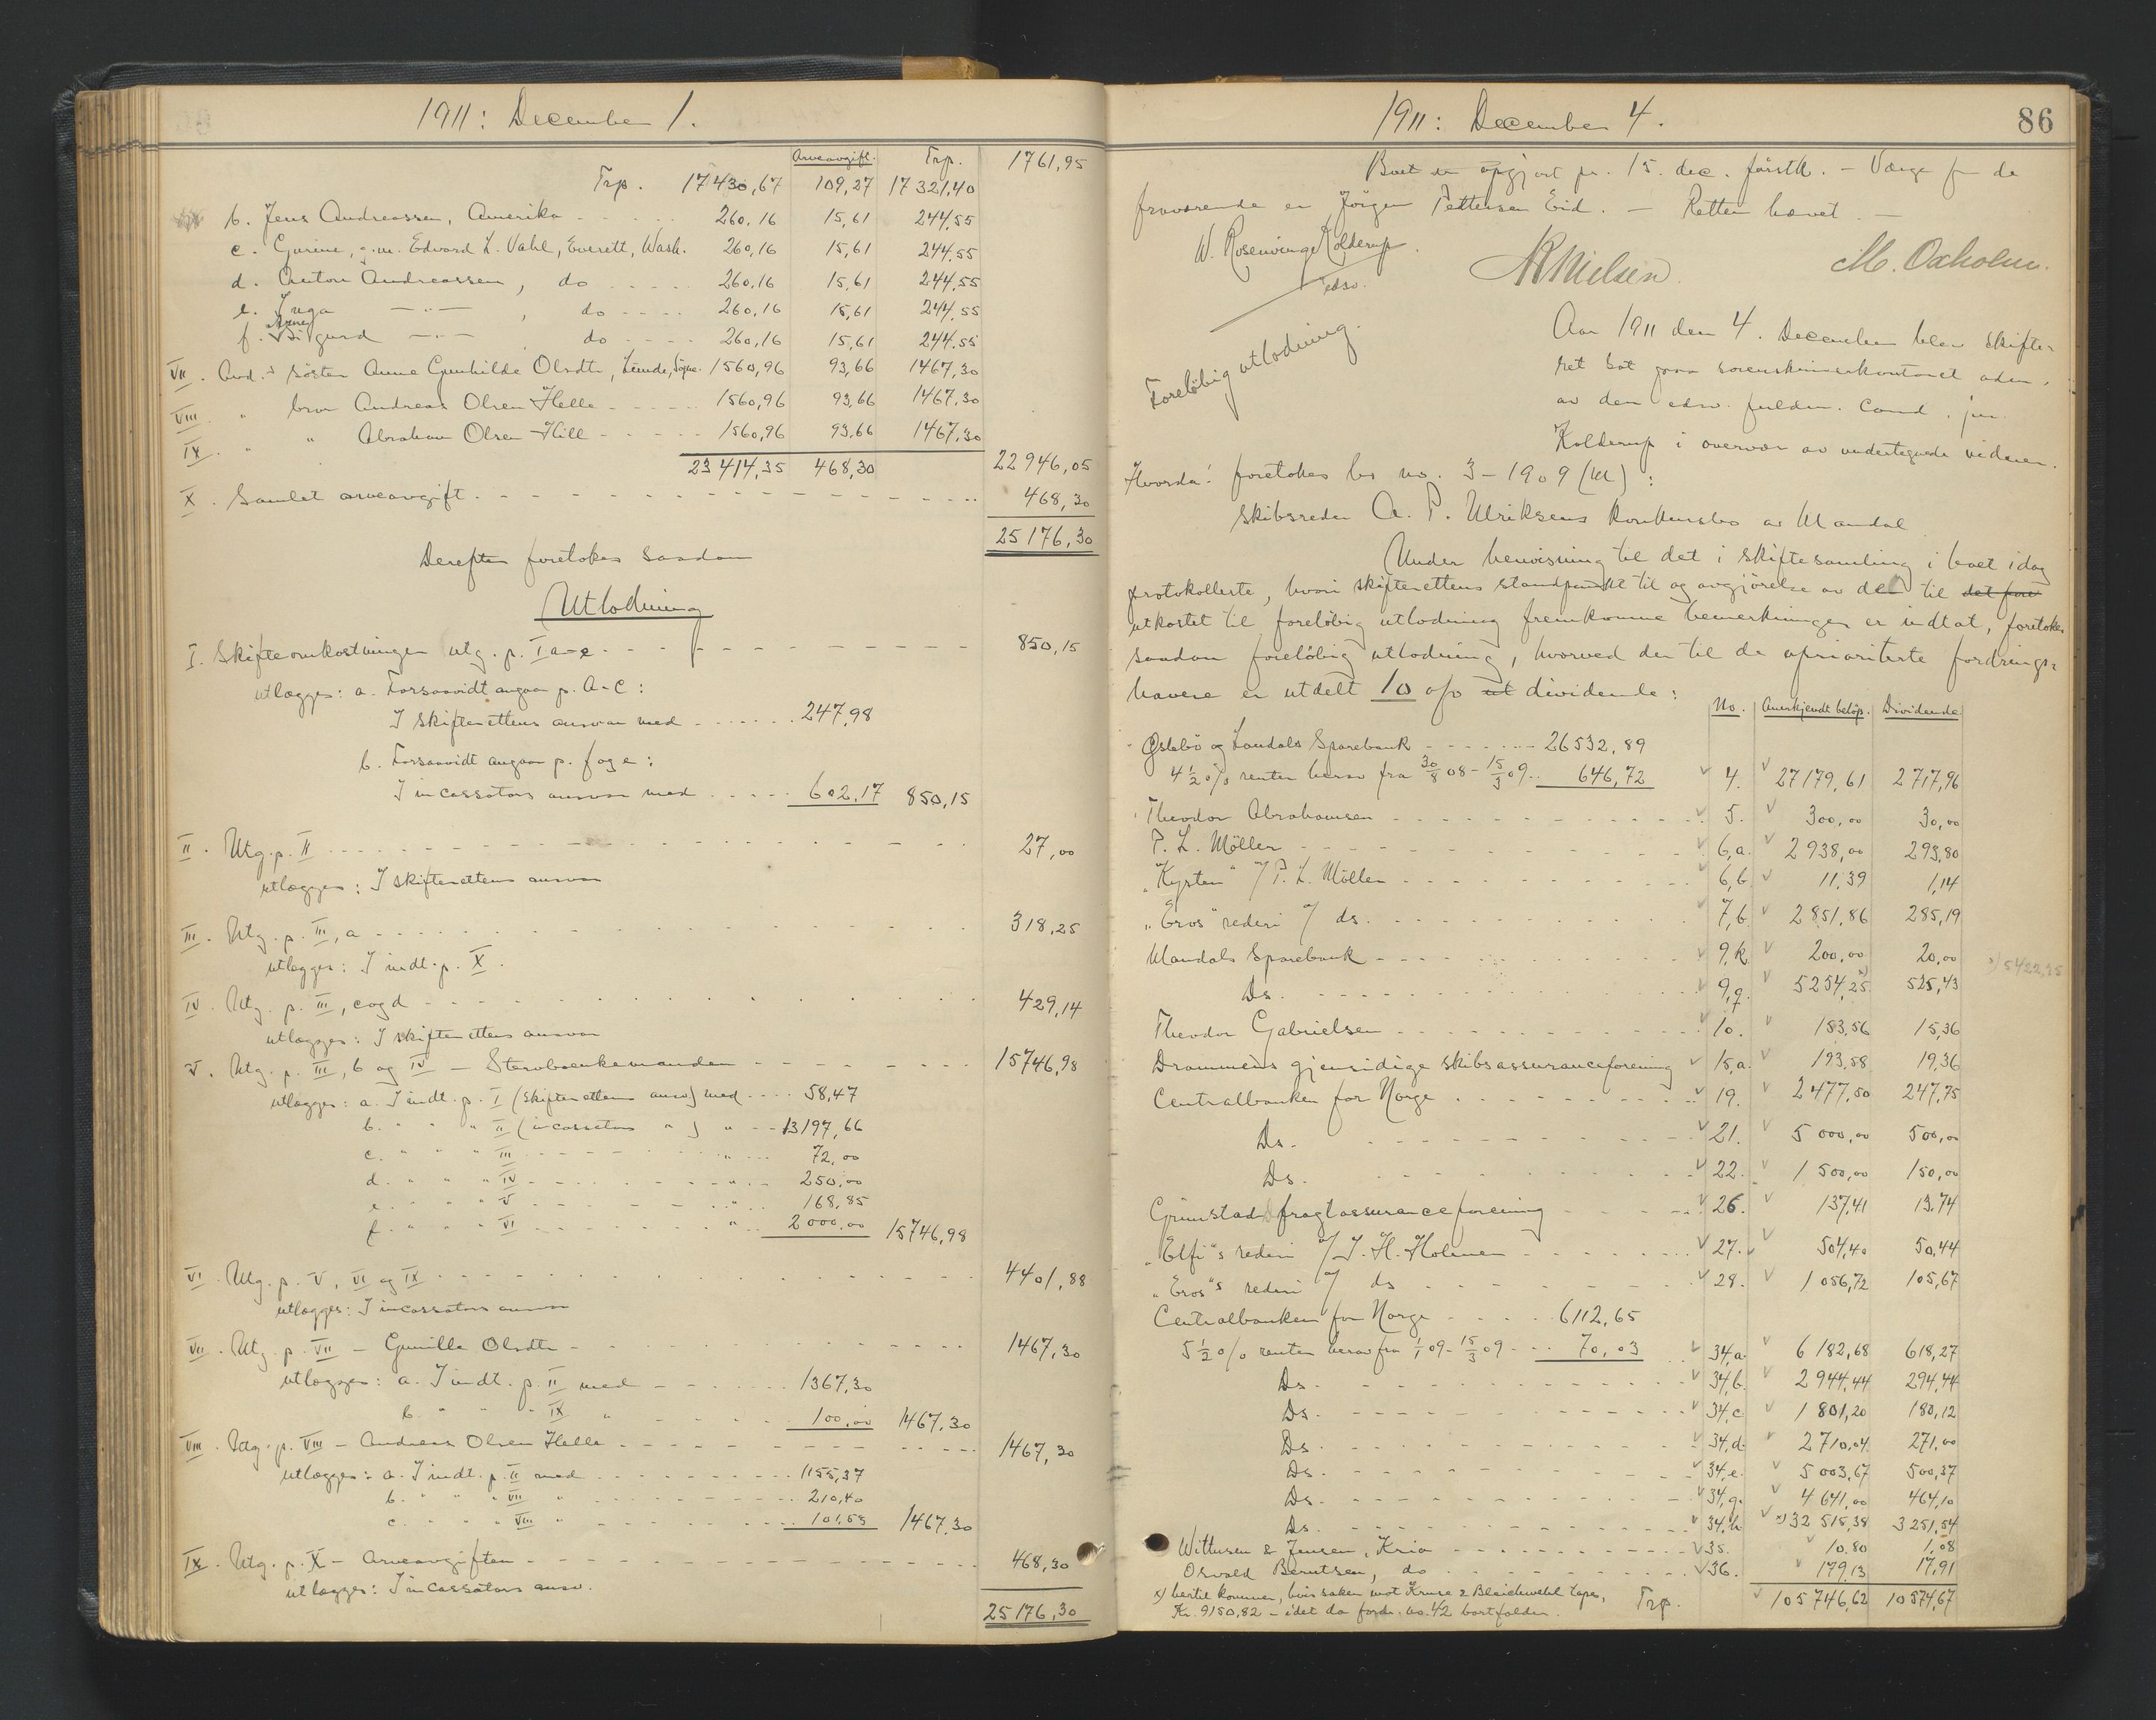 1911: December 1.
Arveavgift. Trp. 1761,95
Trp. 17430,67 109,27 17321,40
b. Jens Andreassen, Amerika - - - 260,16 15,61 244,55
c. Gurine, g.m. Edvard L. Vahl, Everett, Wash. 260,16 15,61 244,55
d. Anton Andreassen, do ..... 260,16 15,61 244,55
e. Inga —"— , do ---- 260,16 15,61 244,55
f. Sigurd —"— , do ---- 260,16 15,61 244,55
VII. Avd.s söster Anne Gunhilde Olsdtr, Lunde, Sögne. 1560,96 93,66 1467,30
VIII. " bror Andreas Olsen Helle ----- 1560,96 93,66 1467,30
IX. " " Abraham Olsen Hille ----- 1560,96 93,66 1467,30
23414,35 468,30 22946,05
X. Samlet arveavgift. - - - - - 468,30
25176,30
Derefter foretokes saadan
Utlodning
I. Skifteomkostninger utg. p. I a-e - - - - 850,15
utlægges: a. Forsaavidt angaar p. a-c:
I skifterettens ansvar med ...... 247,98
b. Forsaavidt angaar p. f og e:
I incassators ansvar med ..... 602,17 850,15
II. Utg. p. II - - - - - 27,00
utlægges: I skifterettens ansvar
III. Utg. p. III, a - - - - - 318,25
utlægges: I indt. p. X.
IV. Utg. p. III, c og d - - - - - 429,14
utlægges: I skifterettens ansvar
V. Utg. p. III, b og IV — Stervboenkemanden - - - 15746,98
utlægges: a. I indt. p. I (skifterettens ansv) med .... 58,47
b. " " " II (incassators " ) " -- 13197,66
c. " " " III - - - " ... 72,00
d. " " " IV - - - " ... 250,00
e. " " " V - - - " ... 168,85
f. " " " VI - - - " ... 2000,00 15746,98
VI. Utg. p. V, VI og IX - - - - 4401,88
utlægges: I incassators ansvar
VII. Utg. p. VII — Gunille Olsdtr - - - - 1467,30
utlægges: a. I indt. p. II med - - - 1367,30
b. " " " IX " - - - 100,00 1467,30
VIII. Utg. p. VIII — Andreas Olsen Helle - - - - 1467,30
utlægges: a. I indt. p. II med - - - 1155,37
b. " " " VII " - - - 210,40
c. " " " VIII " - - - 101,53 1467,30
IX. Utg. p. X — Arveavgiften - - - - 468,30
utlægges: I incassators ansv.
25176,30
1911: December 4. 86
Boet er opgjort pr. 15. dec. förstk. — Værge for de
fraværende er Jörgen Pettersen Eid. — Retten hævet. —
W. Rosenvinge Kolderup. NNielsen. M. Oxholm.
edsv.
Foreløbig utlodning.
Aar 1911 den 4. December blev skifte-
ret sat paa sorenskriverkontoret adm.
av den edsv. fuldm. cand. jur.
Kolderup i overvær av undertegnede vidner.
Hvorda: foretokes bo no. 3 - 1909 (M):
Skibsreder A. P. Ulriksens konkursbo av Mandal
Under henvisning til det i skiftesamling i boet idag
protokollerte, hvori skifterettens standpunkt til og avgjörelse av det til det fore
utkastet til foreløbig utlodning fremkomne bemerkninger er indtat, foretokes
saadan foreløbig utlodning, hvorved der til de uprioriterte fordrings-
havere er utdelt 10 o/o ut dividende:
No. Anerkjendt beløp. Dividende
Øslebö og Laudals Sparebank ------- 26532,89
4 1/2 o/o renter herav fra 30/8 08 - 15/3 09.. 646,72 4. 27179,61 2717,96
Theodor Abrahamsen - - - - 5. 300,00 30,00
P. L. Möller - - - - 6,a. 2938,00 293,80
"Kysten" v/ P. L. Möller - - - 6,b. 11,39 1,14
"Eros" rederi v/ ds. - - - 7,b 2851,86 285,19
Mandals Sparebank - - - 9,k 200,00 20,00
Ds. - - - 9,q. 5254,25 x) 525,43 x) 5422,25
Theodor Gabrielsen - - - 10. 153,56 15,36
Drammens gjensidige skibsassuranceforening 15,a. 193,58 19,36
Centralbanken for Norge - - - 19. 2477,50 247,75
Ds. - - - 21. 5000,00 500,00
Ds. - - - 22. 1500,00 150,00
Grimstad fragtassuranceforening - - - 26. 137,41 13,74
"Elfi"s rederi v/ J. H. Holmen - - - 27. 504,40 50,44
"Eros"s rederi v/ ds - - - 28. 1056,72 105,67
Centralbanken for Norge - - - 6112,65
5 1/2 o/o renter herav fra 1/1 09 - 15/3 09 --- 70,03 34,a. 6182,68 618,27
Ds. - - - 34,b. 2944,44 294,44
Ds. - - - 34,c 1801,20 180,12
Ds. - - - 34,d. 2710,04 271,00
Ds. - - - 34,e. 5003,67 500,37
Ds. - - - 34,g. 4641,00 464,10
Ds. - - - 34,h x) 32515,38 3251,54
Wittusen & Jensen, Kria - - - 35. 10,80 1,08
Osvald Berntsen, do - - - 36. 179,13 17,91
x) hertil kommer, hvis saken mot Kruse & Bleichwehl tapes, Trp. 105746,62 10574,67
Kr. 9150,82 — idet da fordr. no. 42 bortfalder.